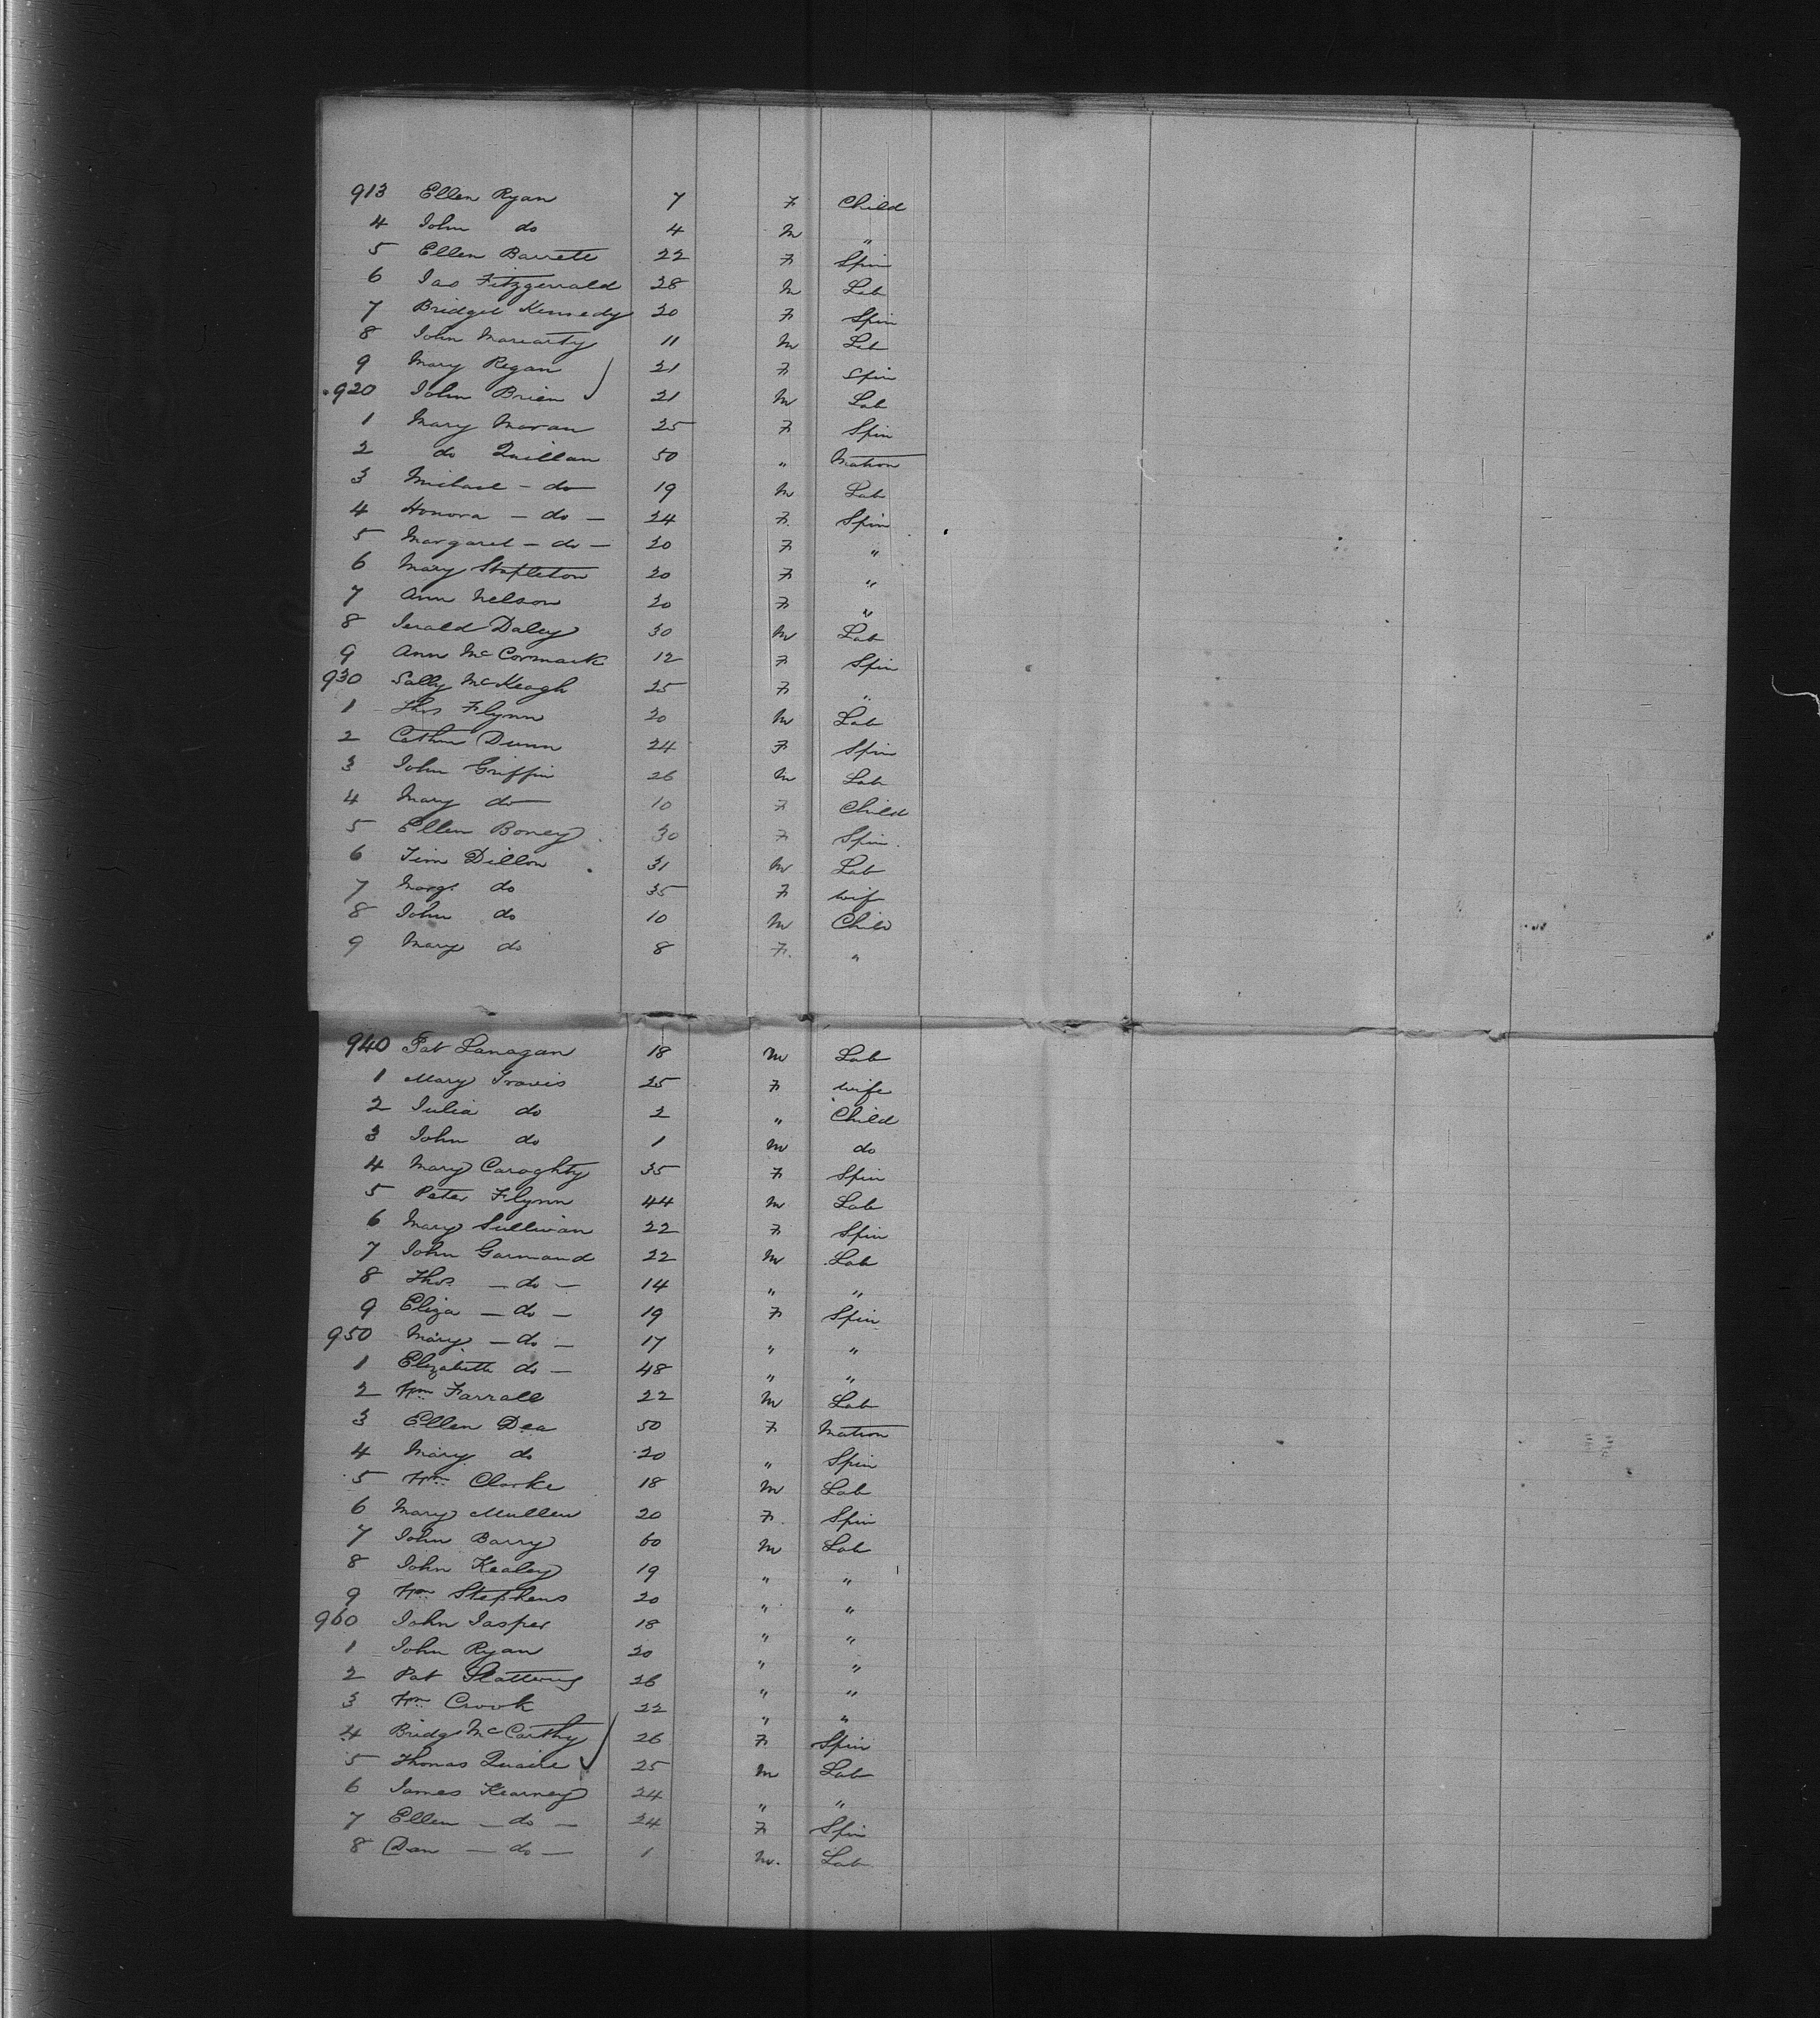 913 Ellen Ryan 7 F Child
4 John do 4 M "
5 Ellen Barrett 22 F Spin
6 Jas Fitzgerrald 28 M Lab
7 Bridget Kennedy 20 F Spin
8 John Mariarty 11 M Lab
9 Mary Regan 21 F Spin
920 John Brien 21 M Lab
1 Mary Moran 25 F Spin
2 do Quillan 50 " Matron
3 Michael - do 19 M Lab
4 Honora - do - 24 F Spin
5 Margaret - do - 20 F "
6 Mary Stapleton 20 F "
7 Ann Nelson 20 F "
8 Jerald Daley 30 M Lab
9 Ann McCormack 12 F Spin
930 Sally McKeogh 25 F "
1 Thos Flynn 20 M Lab
2 Cathn Dunn 24 F Spin
3 John Griffin 26 M Lab
4 Mary do 10 F Child
5 Ellen Boney 30 F Spin
6 Tim Dillon 31 M Lab
7 Marg. do 35 F wif
8 John do 10 M Child
9 Mary do 8 F "
940 Pat Lanagan 18 M Lab
1 Mary Travis 25 F wife
2 Julia do 2 " Child
3 John do 1 M do
4 Mary Caraghty 35 F Spin
5 Peter Flynn 44 M Lab
6 Mary Sullivan 22 F Spin
7 John Garmand 22 M Lab
8 Thos - do - 14 " "
9 Eliza - do - 19 F Spin
950 Mary - do - 17 " "
1 Elizabeth do - 48 " "
2 Wm Farrall 22 M Lab
3 Ellen Dea 50 F Matron
4 Mary do 20 " Spin
5 Wm Clarke 18 M Lab
6 Mary Mullen 20 F Spin
7 John Barry 60 M Lab
8 John Kealey 19 " "
9 Wm Stephens 20 " "
960 John Jasper 18 " "
1 John Ryan 20 " "
2 Pat Slattery 26 " "
3 Wm Crook 22 " "
4 Bridg McCarthy 26 F Spin
5 Thomas Quaile 25 M Lab
6 James Kearney 24 " "
7 Ellen - do - 24 F Spin
8 Dan - do - 1 M. Lab